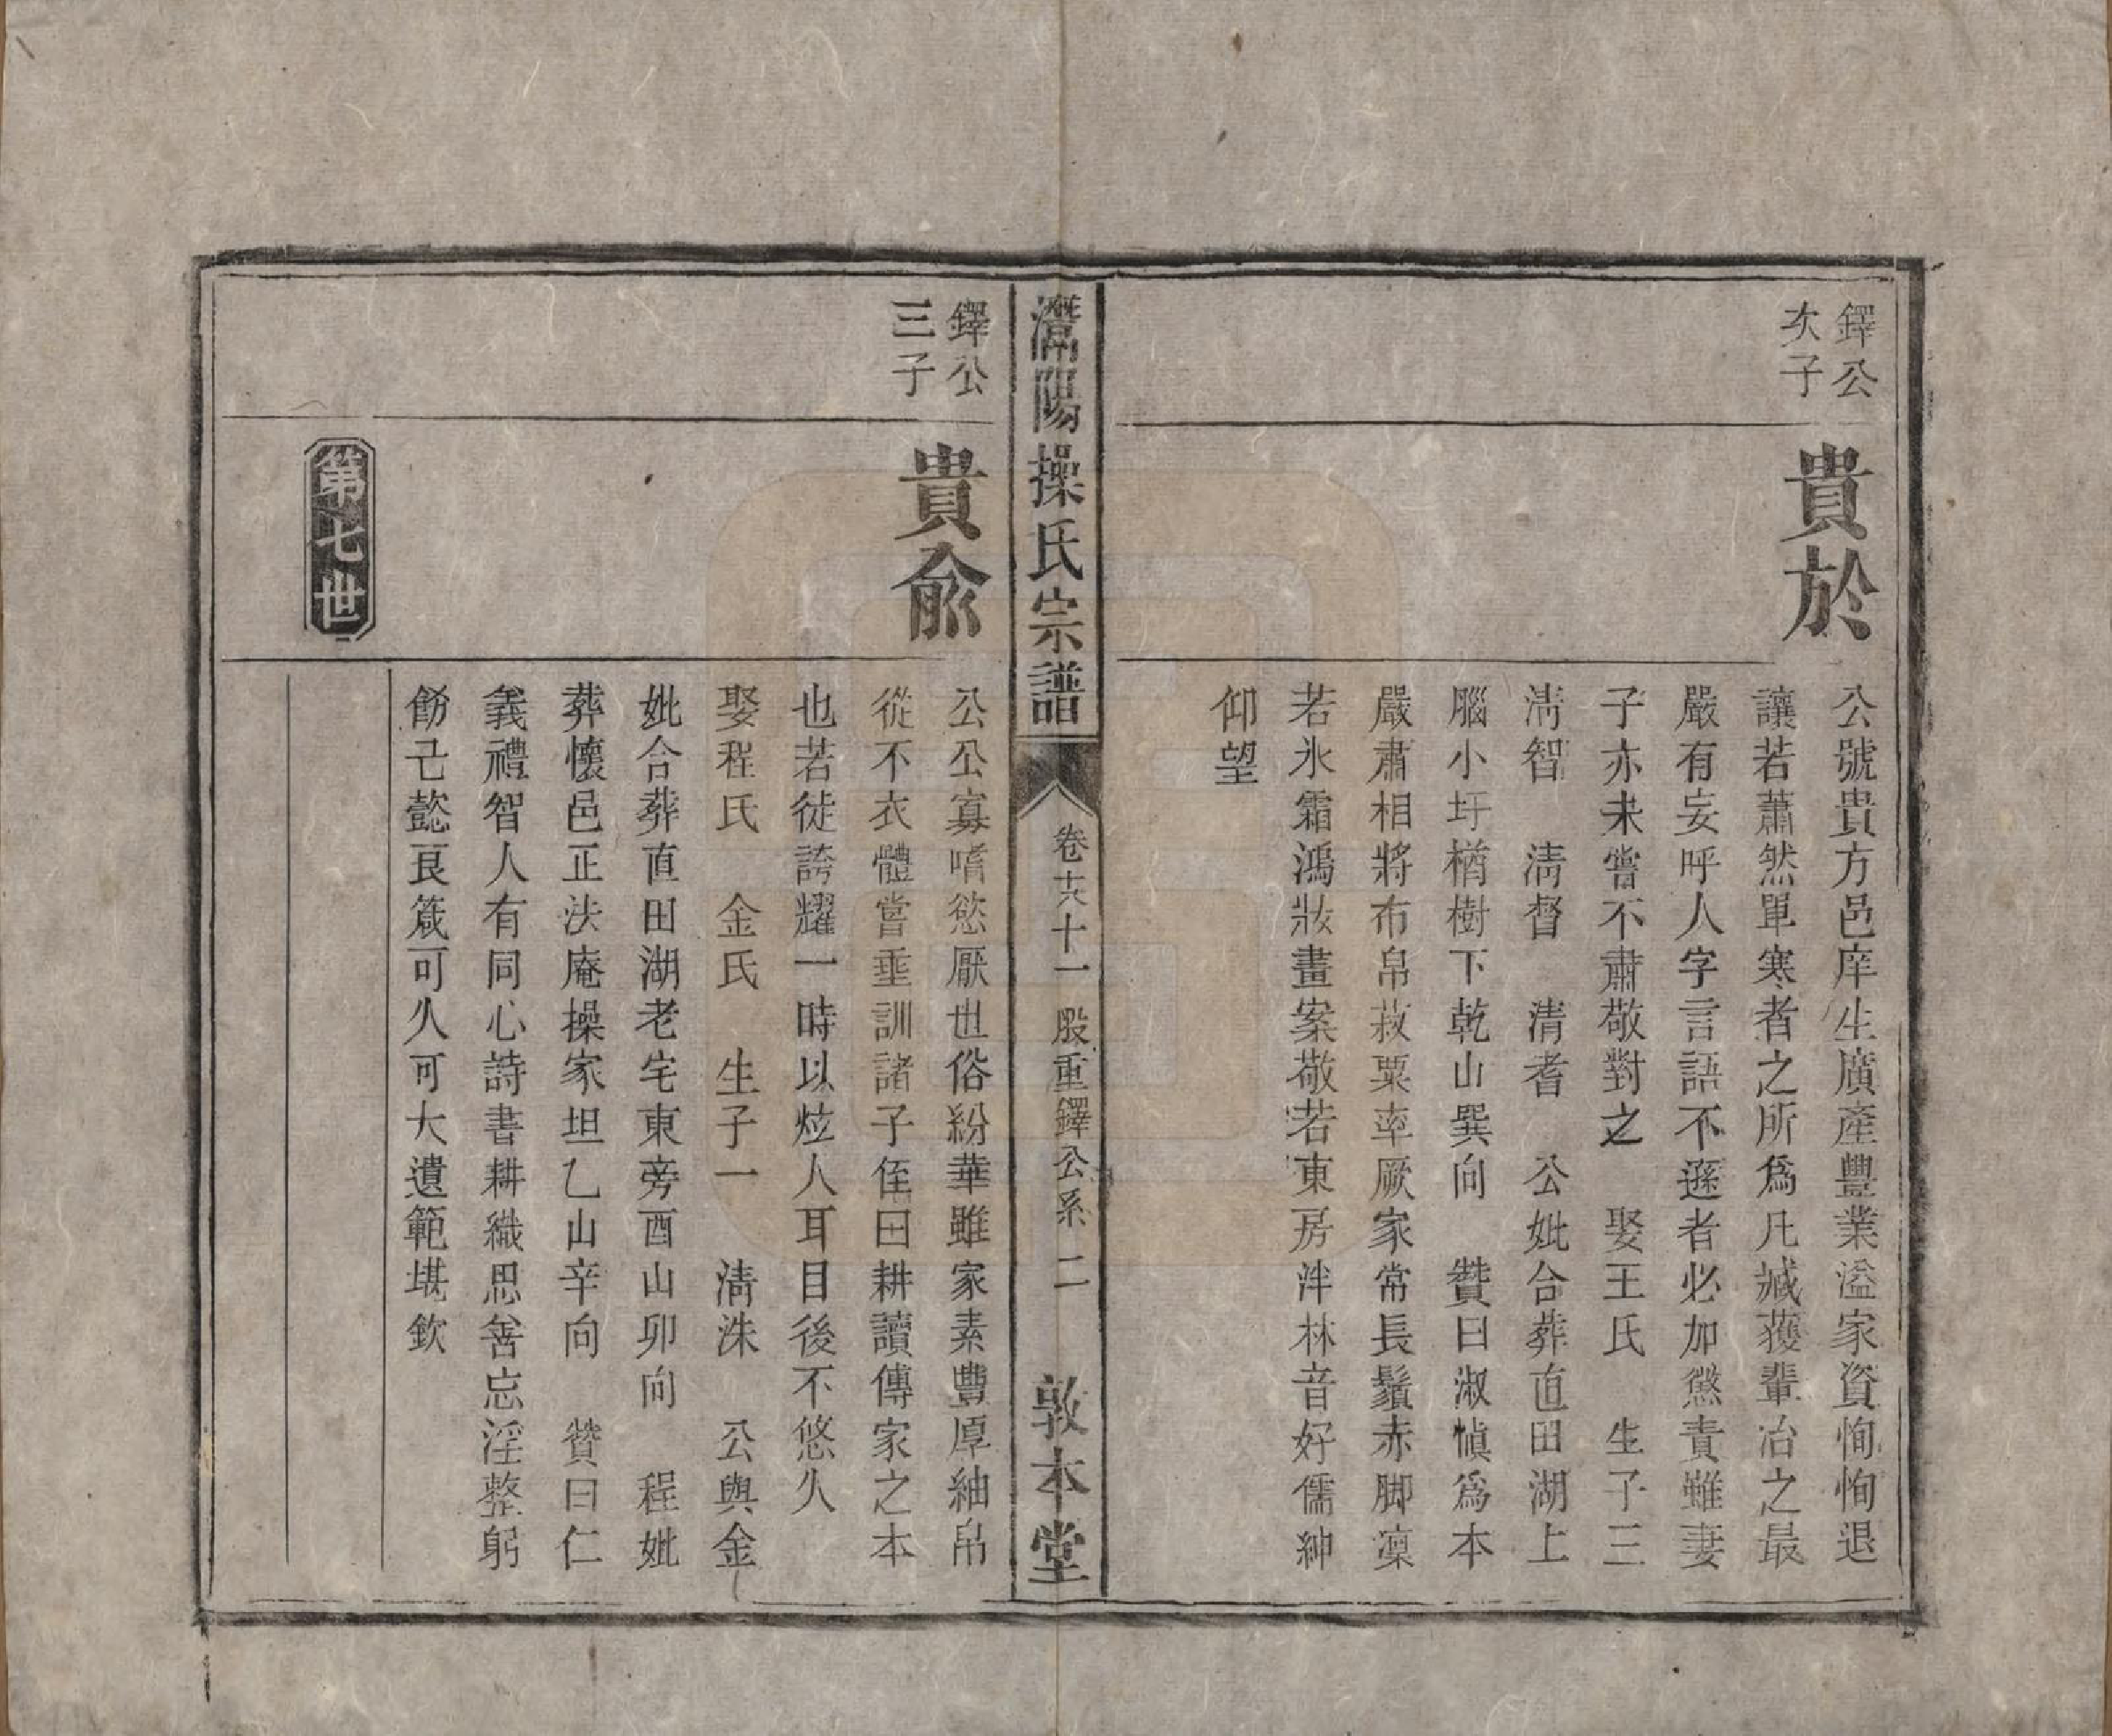 鐸公
次子
貴於
公號貴方邑庠生廣產豐業溢家資恂恂退
讓若蕭然單寒者之所爲凡臧獲輩冶之最
嚴有妄呼人字言語不遜者必加懲責雖妻
子亦未嘗不肅敬對之　娶王氏　生子三
淸智　淸督　清耆　公妣合葬直田湖上
腦小圩楢樹下乾山巽向　贊曰淑愼爲本
嚴肅相將布帛菽粟率厥家常長鬚赤脚凜
若氷霜鴻妝畫案敬若東房泮林音好儒紳
仰望
灊陽操氏宗譜
卷十六十一股重鐸公系　二
敦本堂
鐸公
三子
貴兪
公公寡嗜慾厭世俗紛華雖家素豐厚紬帛
從不衣體嘗垂訓諸子侄曰耕讀傳家之本
也若徒誇耀一時以炫人耳目後不悠久
娶程氏　金氏　生子一　淸洙　公與金
妣合葬直田湖老宅東旁酉山卯向　程妣
葬懷邑正法庵操家坦乙山辛向　贊曰仁
義禮智人有同心詩書耕織思善忘淫整躬
飭己懿艮箴可久可大遺範堪欽
第七世